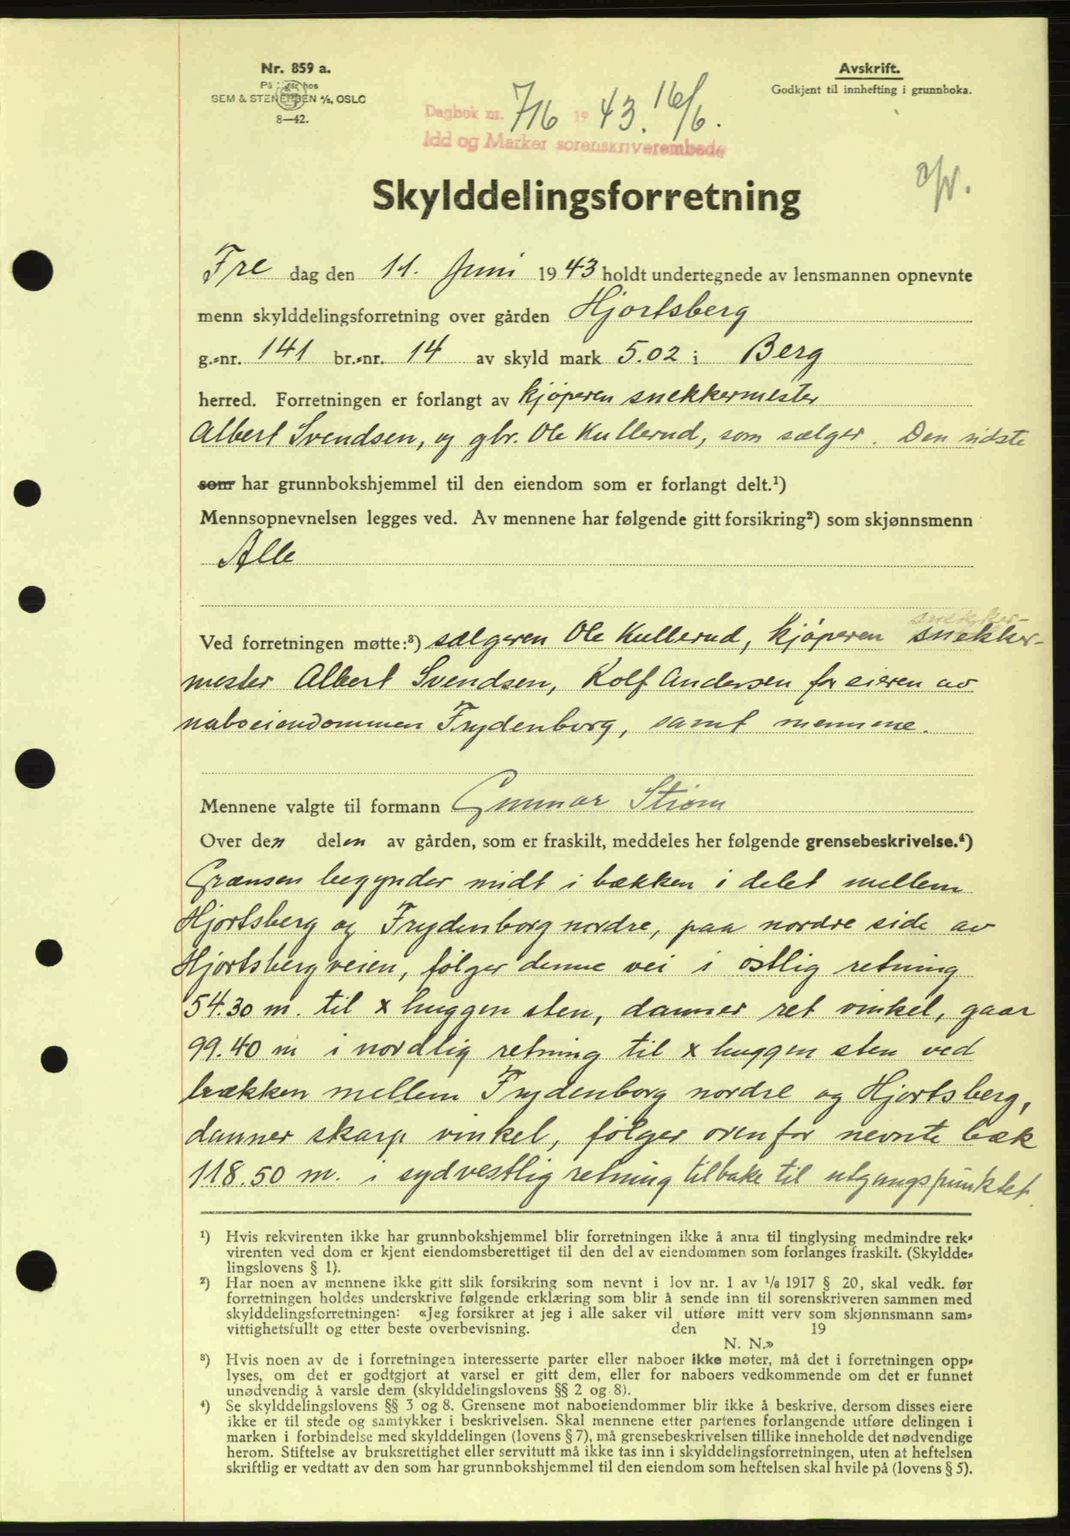 Nr. 859 a.
SEM & STENERSEN A/S, OSLO
8—42.
Avskrift.
Godkjent til innhefting i grunnboka.
Dagbok nr. 716 1943. 16/6.
Idd og Marker sorenskriverembede
Skylddelingsforretning
Fre dag den 11. Juni 1943 holdt undertegnede av lensmannen opnevnte
menn skylddelingsforretning over gården Hjortsberg
g.-nr. 141 br.-nr. 14 av skyld mark 5.02 i Berg
herred. Forretningen er forlangt av kjöperen snekkermester
Albert Svendsen, og gbr. Ole Kullerud, som sælger. Den sidste
som har grunnbokshjemmel til den eiendom som er forlangt delt.¹)
Mennsopnevnelsen legges ved. Av mennene har følgende gitt forsikring²) som skjønnsmenn
Alle
snekker-
Ved forretningen møtte:³) sælgeren Ole Kullerud, kjöperen snekker-
mester Albert Svendsen, Rolf Andersen for eieren av
naboeiendommen Frydenborg, samt mennene.
Mennene valgte til formann Gunnar Strøm
Over den delen av gården, som er fraskilt, meddeles her følgende grensebeskrivelse.⁴)
Grænsen begynder midt i bækken i delet mellem
Hjortsberg og Frydenborg nordre, paa nordre side av
Hjortsbergveien, følger denne vei i östlig retning
54.30 m. til x huggen sten, danner ret vinkel, gaar
99.40 m i nordlig retning til x huggen sten ved
bækken mellem Frydenborg nordre og Hjortsberg,
danner skarp vinkel, følger ovenfor nevnte bæk
118.50 m. i sydvestlig retning tilbake til utgangspunktet.
¹) Hvis rekvirenten ikke har grunnbokshjemmel blir forretningen ikke å anta til tinglysing medmindre rek-
virenten ved dom er kjent eiendomsberettiget til den del av eiendommen som forlanges fraskilt. (Skyldde-
lingslovens § 1).
²) Har noen av mennene ikke gitt slik forsikring som nevnt i lov nr. 1 av 1/6 1917 § 20, skal vedk. før
forretningen holdes underskrive følgende erklæring som blir å sende inn til sorenskriveren sammen med
skylddelingsforretningen: «Jeg forsikrer at jeg i alle saker vil utføre mitt verv som skjønnsmann sam-
vittighetsfullt og etter beste overbevisning. den 19
N. N.»
³) Hvis noen av de i forretningen interesserte parter eller naboer ikke møter, må det i forretningen opp-
lyses, om det er godtgjort at varsel er gitt dem, eller for naboers vedkommende om det er funnet
unødvendig å varsle dem (skylddelingslovens §§ 2 og 8).
⁴) Se skylddelingslovens §§ 3 og 8. Grensene mot naboeiendommer blir ikke å beskrive, dersom disses eiere
ikke er til stede og samtykker i beskrivelsen. Skal mennene etter partenes forlangende utføre delingen i
marken i forbindelse med skylddelingen (lovens § 7), må grensebeskrivelsen tillike inneholde det nødvendige
herom. Stiftelse av bruksrettighet eller servitutt må ikke tas inn i skylddelingsforretningen, uten at heftelsen
skriftlig er vedtatt av den som har grunnbokshjemmel til den eiendom som heftelsen skal hvile på (lovens § 5).